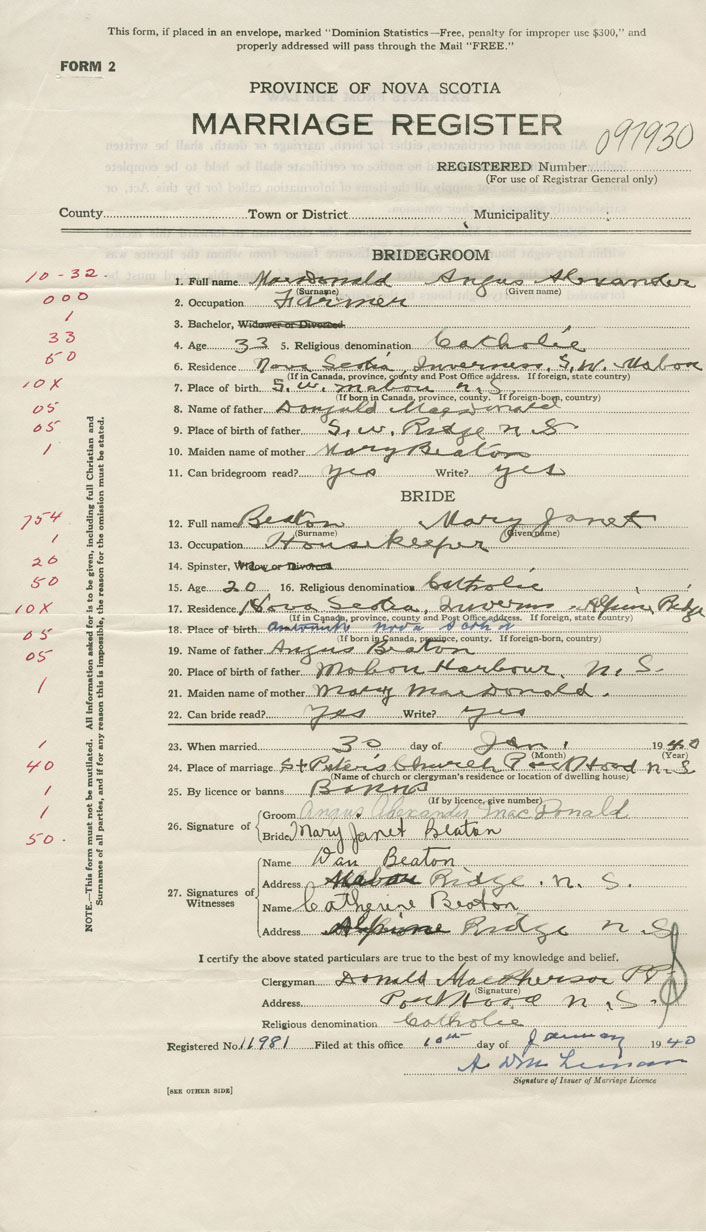 This form, if placed in an envelope, marked "Dominion Statistics—Free, penalty for improper use $300," and
properly addressed will pass through the Mail "FREE."
FORM 2
PROVINCE OF NOVA SCOTIA
MARRIAGE REGISTER
097930
REGISTERED Number
(For use of Registrar General only)
County Town or District Municipality
BRIDEGROOM
10-32. 1. Full name MacDonald Angus Alexander
(Surname) (Given name)
000 2. Occupation Farmer
1 3. Bachelor, Widower or Divorced
33 4. Age 33 5. Religious denomination Catholic
50 6. Residence Nova Scotia, Inverness, S. W. Mabou
(If in Canada, province, county and Post Office address. If foreign, state country)
10X 7. Place of birth S. W. Mabou N. S.
(If born in Canada, province, county. If foreign-born, country)
05 8. Name of father Donald MacDonald
05 9. Place of birth of father S. W. Ridge N S
1 10. Maiden name of mother Mary Beaton
11. Can bridegroom read? yes Write? yes
BRIDE
754 12. Full name Beaton Mary Janet
(Surname) (Given name)
1 13. Occupation Housekeeper
20 14. Spinster, Widow or Divorced
50 15. Age 20 16. Religious denomination Catholic
10X 17. Residence Nova Scotia, Inverness Alpine Ridge
(If in Canada, province, county and Post Office address. If foreign, state country)
05 18. Place of birth Nova Scotia
(If born in Canada, province, county. If foreign-born, country)
05 19. Name of father Angus Beaton
20. Place of birth of father Mabou Harbour, N. S.
1 21. Maiden name of mother Mary MacDonald.
22. Can bride read? Yes Write? yes
1 23. When married 30 day of Jan. 1940
(Month) (Year)
40 24. Place of marriage St Peter's Church Port Hood N S
(Name of church or clergyman's residence or location of dwelling house)
1 25. By licence or banns Banns
(If by licence, give number)
1 26. Signature of Groom Angus Alexander MacDonald
50. Bride Mary Janet Beaton
27. Signatures of Witnesses
Name Dan Beaton
Address Mabou Ridge. N. S.
Name Catherine Beaton
Address Alpine Ridge N S
I certify the above stated particulars are true to the best of my knowledge and belief.
Clergyman Donald MacPherson PP
(Signature)
Address Port Hood N. S.
Religious denomination Catholic
Registered No. 11981 Filed at this office 10th day of January 1940
Signature of Issuer of Marriage Licence
[SEE OTHER SIDE]
NOTE.—This form must not be mutilated. All information asked for is to be given, including full Christian and
Surnames of all parties, and if for any reason this is impossible, the reason for the omission must be stated.